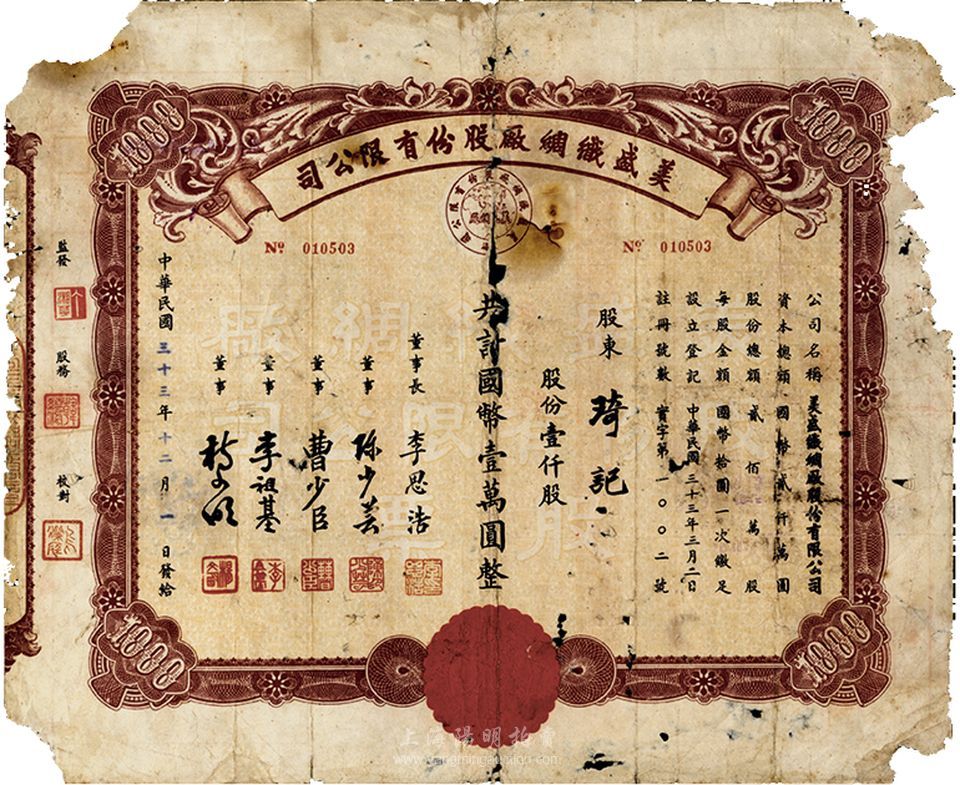 美盛織綢廠股份有限公司
№ 010503
№ 010503
1000
1000
1000
1000
公司名稱 美盛織綢廠股份有限公司
資本總額 國幣貳仟萬圓
股份總額 貳佰萬股
每股金額 國幣拾圓一次繳足
設立登記 中華民國三十三年三月二日
註冊號數 實字第一〇〇二號
股東 琦記
股份壹仟股
共計國幣壹萬圓整
董事長 李思浩
董事 陈少芸
董事 曹少臣
董事 李祖基
董事
中華民國三十三年十二月一日發給
監發
股務
校對
美盛織綢廠
股份有限公司
股票
上海陽明拍賣
www.yangmingauction.com